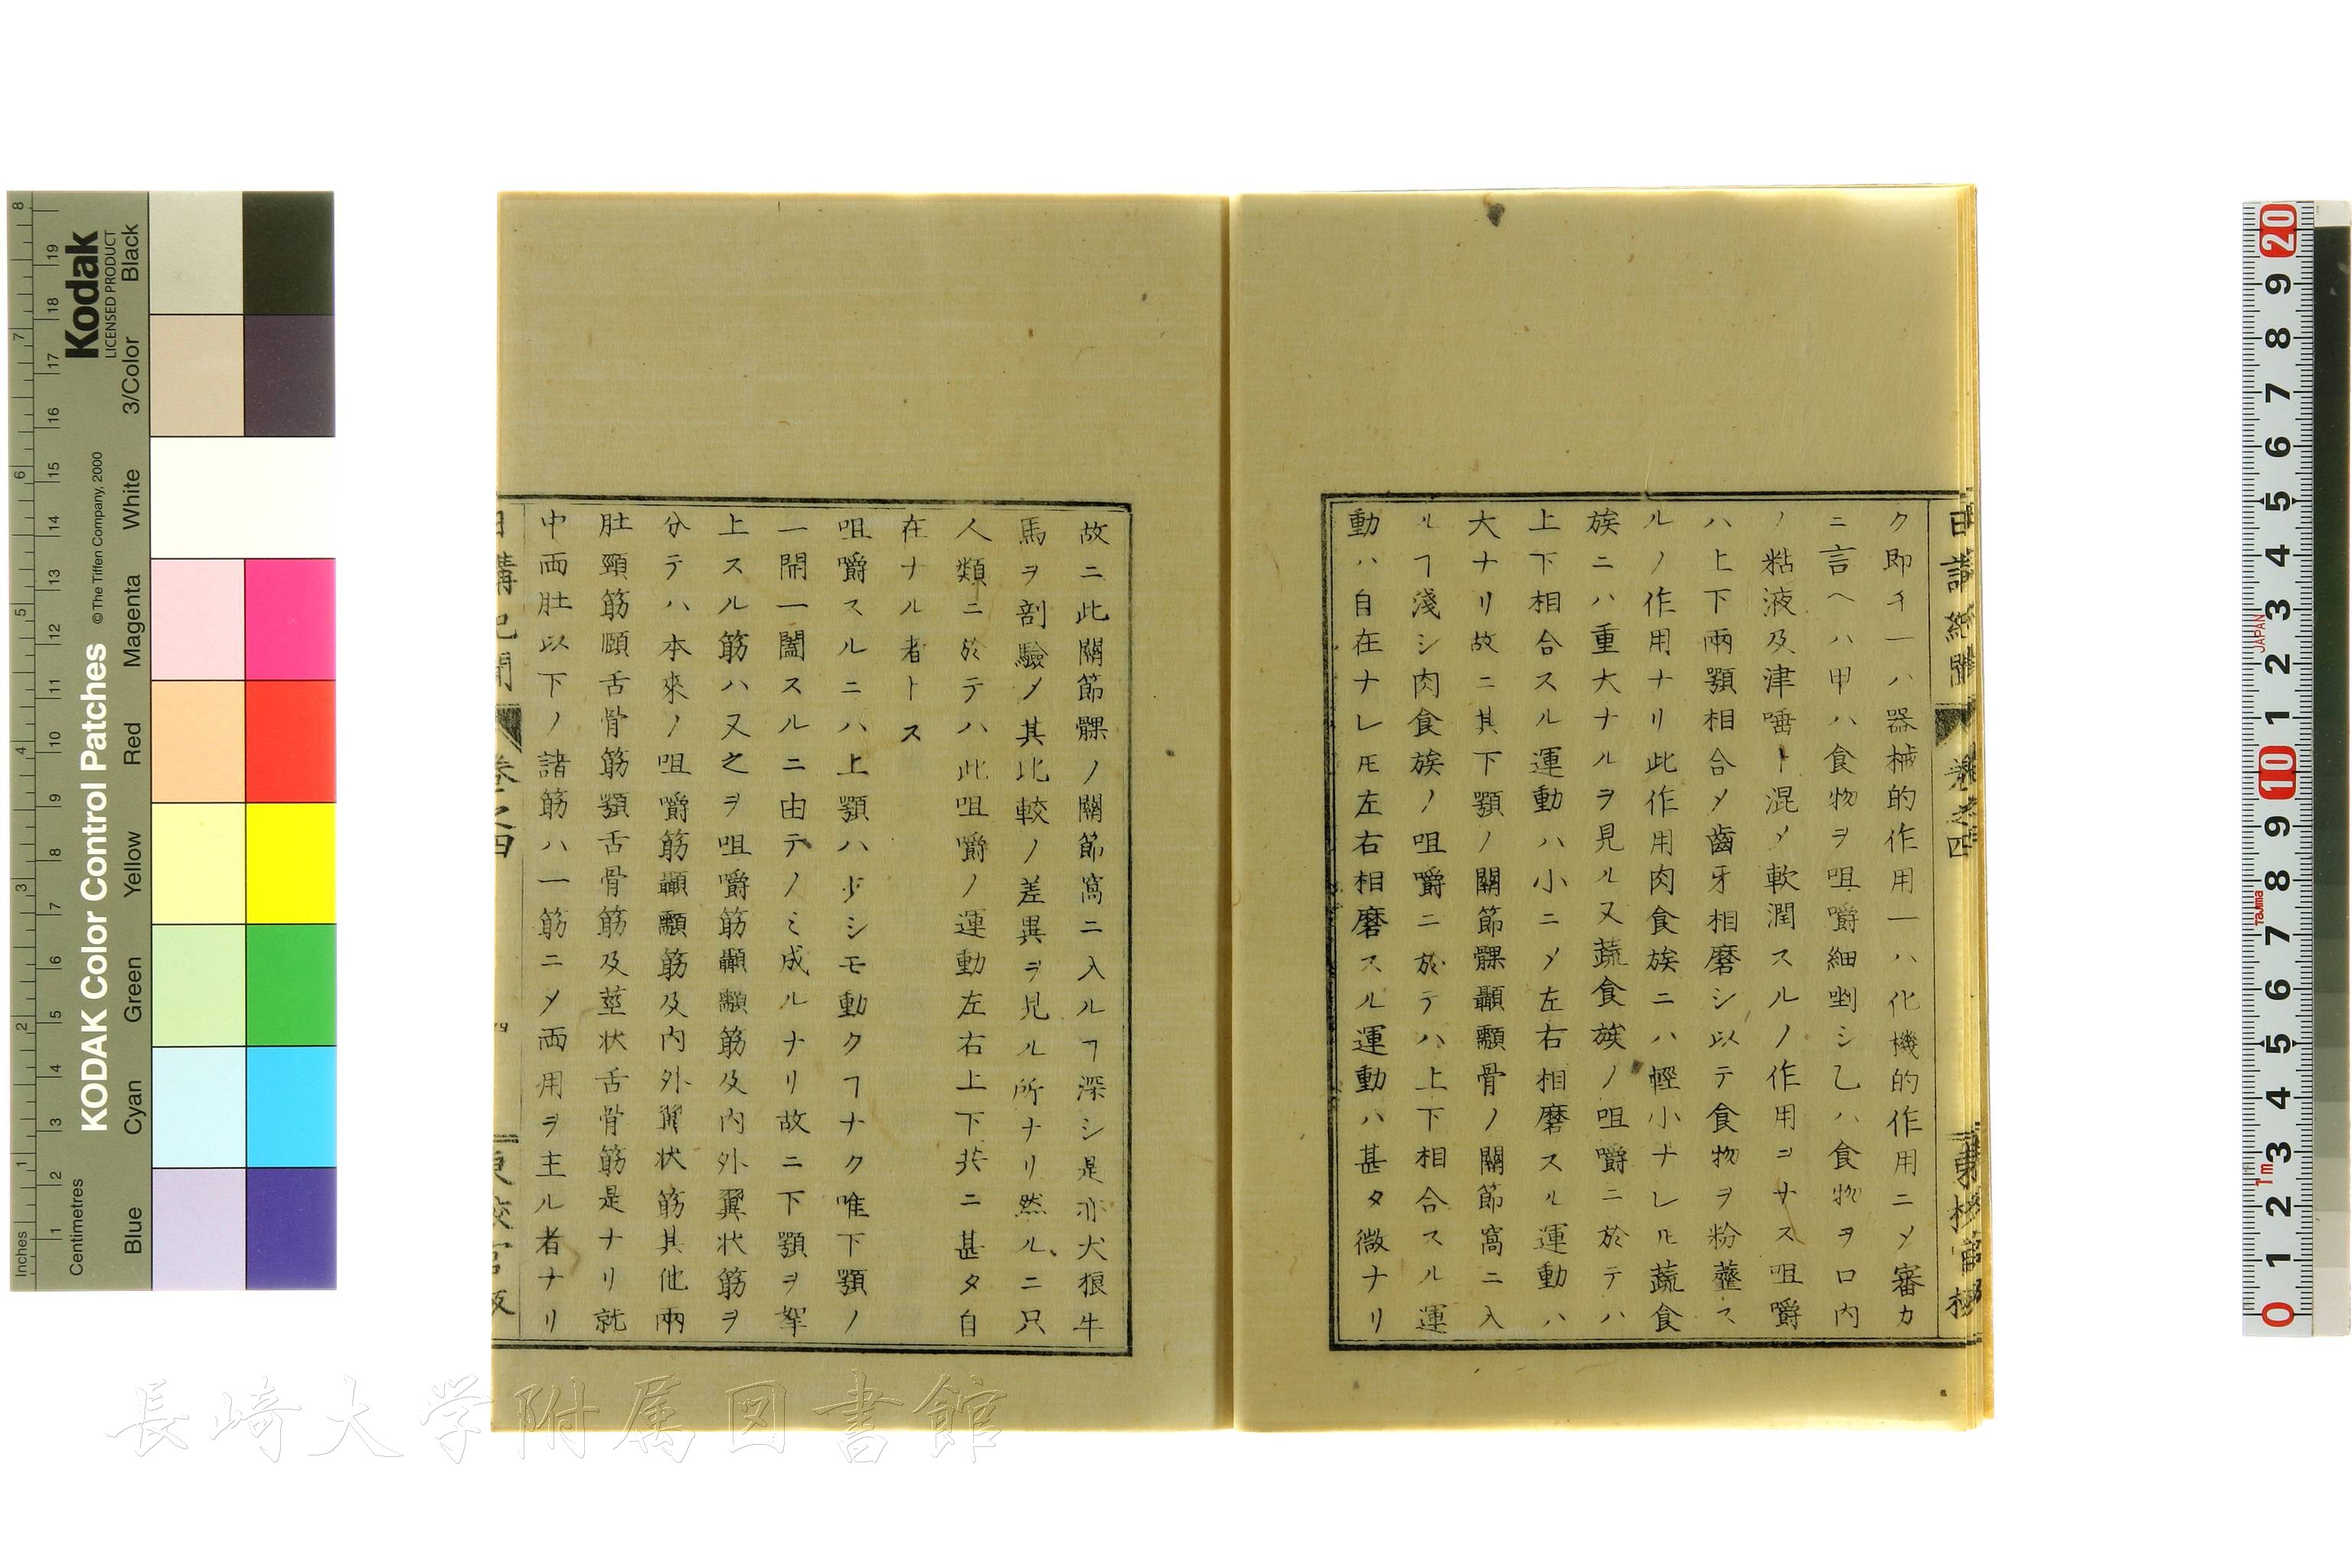 ク即チ一ハ器械的作用一ハ化機的作用ニ〆審カ
ニ言ヘハ甲ハ食物ヲ咀嚼細剉シ乙ハ食物ヲ口内
ノ粘液及津唾ト混〆軟潤スルノ作用ヲナス咀嚼
ハ上下兩顎相合〆齒牙相磨シ以テ食物ヲ粉虀ス
ルノ作用ナリ此作用肉食族ニハ輕小ナレ𪜈蔬食
族ニハ重大ナルヲ見ル又蔬食族ノ咀嚼ニ於テハ
上下相合スル運動ハ小ニ〆左右相磨スル運動ハ
大ナリ故ニ其下顎ノ關節髁顳顬骨ノ關節窩ニ入
ルヿ淺シ肉食族ノ咀嚼ニ於テハ上下相合スル運
動ハ自在ナレ𪜈左右相磨スル運動ハ甚タ微ナリ
故ニ此關節髁ノ關節窩ニ入ルヿ深シ是亦犬狼牛
馬ヲ剖驗〆其比較ノ差異ヲ見ル所ナリ然ルニ只
人類ニ於テハ此咀嚼ノ運動左右上下共ニ甚タ自
在ナル者トス
咀嚼スルニハ上顎ハ少シモ動クヿナク唯下顎ノ
一開一闔スルニ由テノミ成ルナリ故ニ下顎ヲ牽
上スル筋ハ又之ヲ咀嚼筋顳顬筋及内外翼状筋ヲ
分テハ本來ノ咀嚼筋顳顬筋及内外翼状筋其他兩
肚頸筋頤舌骨筋顎舌骨筋及莖状舌骨筋是ナリ就
中両肚以下ノ諸筋ハ一筋ニ〆両用ヲ主ル者ナリ
日講記聞 卷之四 四
KODAK Color Control Patches
© The Tiffen Company, 2000
Kodak
LICENSED PRODUCT
Inches 1 2 3 4 5 6 7 8
Centimetres 1 2 3 4 5 6 7 8 9 10 11 12 13 14 15 16 17 18 19
Blue Cyan Green Yellow Red Magenta White 3/Color Black
0 1 2 3 4 5 6 7 8 9 10 1 2 3 4 5 6 7 8 9 20
1m Tajima JAPAN
長崎大学附属図書館